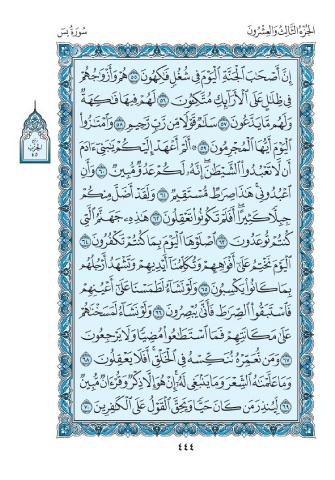 الجزء الثالث والعشرون
سورة يس
إِنَّ أَصْحَٰبَ ٱلْجَنَّةِ ٱلْيَوْمَ فِى شُغُلٍ فَٰكِهُونَ ٥٥ هُمْ وَأَزْوَٰجُهُمْ
فِى ظِلَٰلٍ عَلَى ٱلْأَرَآئِكِ مُتَّكِـُٔونَ ٥٦ لَهُمْ فِيهَا فَٰكِهَةٌ
وَلَهُم مَّا يَدَّعُونَ ٥٧ سَلَٰمٌ قَوْلًا مِّن رَّبٍّ رَّحِيمٍ ٥٨ وَٱمْتَٰزُوا۟
ٱلْيَوْمَ أَيُّهَا ٱلْمُجْرِمُونَ ٥٩ ۞ أَلَمْ أَعْهَدْ إِلَيْكُمْ يَٰبَنِىٓ ءَادَمَ
أَن لَّا تَعْبُدُوا۟ ٱلشَّيْطَٰنَ إِنَّهُۥ لَكُمْ عَدُوٌّ مُّبِينٌ ٦٠ وَأَنِ
ٱعْبُدُونِى هَٰذَا صِرَٰطٌ مُّسْتَقِيمٌ ٦١ وَلَقَدْ أَضَلَّ مِنكُمْ
جِبِلًّا كَثِيرًا أَفَلَمْ تَكُونُوا۟ تَعْقِلُونَ ٦٢ هَٰذِهِۦ جَهَنَّمُ ٱلَّتِى
كُنتُمْ تُوعَدُونَ ٦٣ ٱصْلَوْهَا ٱلْيَوْمَ بِمَا كُنتُمْ تَكْفُرُونَ ٦٤
ٱلْيَوْمَ نَخْتِمُ عَلَىٰٓ أَفْوَٰهِهِمْ وَتُكَلِّمُنَآ أَيْدِيهِمْ وَتَشْهَدُ أَرْجُلُهُم
بِمَا كَانُوا۟ يَكْسِبُونَ ٦٥ وَلَوْ نَشَآءُ لَطَمَسْنَا عَلَىٰٓ أَعْيُنِهِمْ
فَٱسْتَبَقُوا۟ ٱلصِّرَٰطَ فَأَنَّىٰ يُبْصِرُونَ ٦٦ وَلَوْ نَشَآءُ لَمَسَخْنَٰهُمْ
عَلَىٰ مَكَانَتِهِمْ فَمَا ٱسْتَطَٰعُوا۟ مُضِيًّا وَلَا يَرْجِعُونَ
٦٧ وَمَن نُّعَمِّرْهُ نُنَكِّسْهُ فِى ٱلْخَلْقِ أَفَلَا يَعْقِلُونَ ٦٨
وَمَا عَلَّمْنَٰهُ ٱلشِّعْرَ وَمَا يَنۢبَغِى لَهُۥٓ إِنْ هُوَ إِلَّا ذِكْرٌ وَقُرْءَانٌ مُّبِينٌ
٦٩ لِّيُنذِرَ مَن كَانَ حَيًّا وَيَحِقَّ ٱلْقَوْلُ عَلَى ٱلْكَٰفِرِينَ ٧٠
الحزب
٤٥
٤٤٤